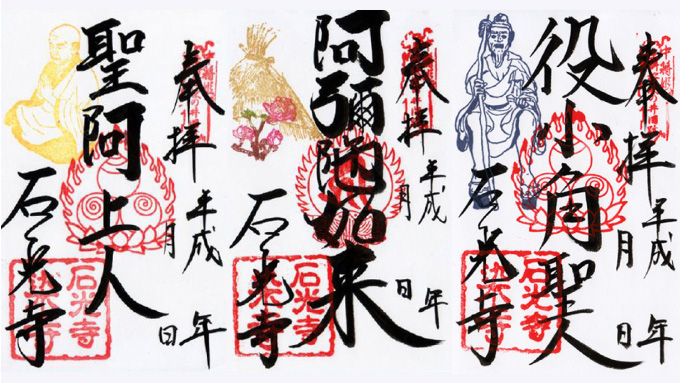 奉拝
平成 年
月 日
聖阿上人
石光寺
石光寺
奉拝
平成 年
月 日
阿彌陀如来
石光寺
石光寺
奉拝
平成 年
月 日
役小角聖人
石光寺
石光寺